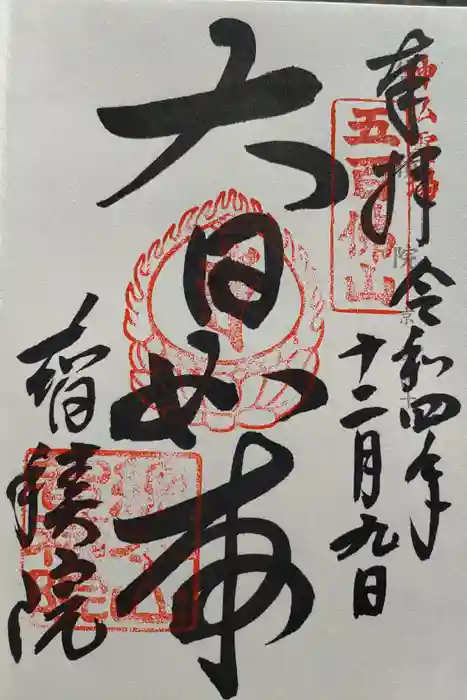 奉拝 令和四年
十二月九日
五百佛山
大日如来
智積院